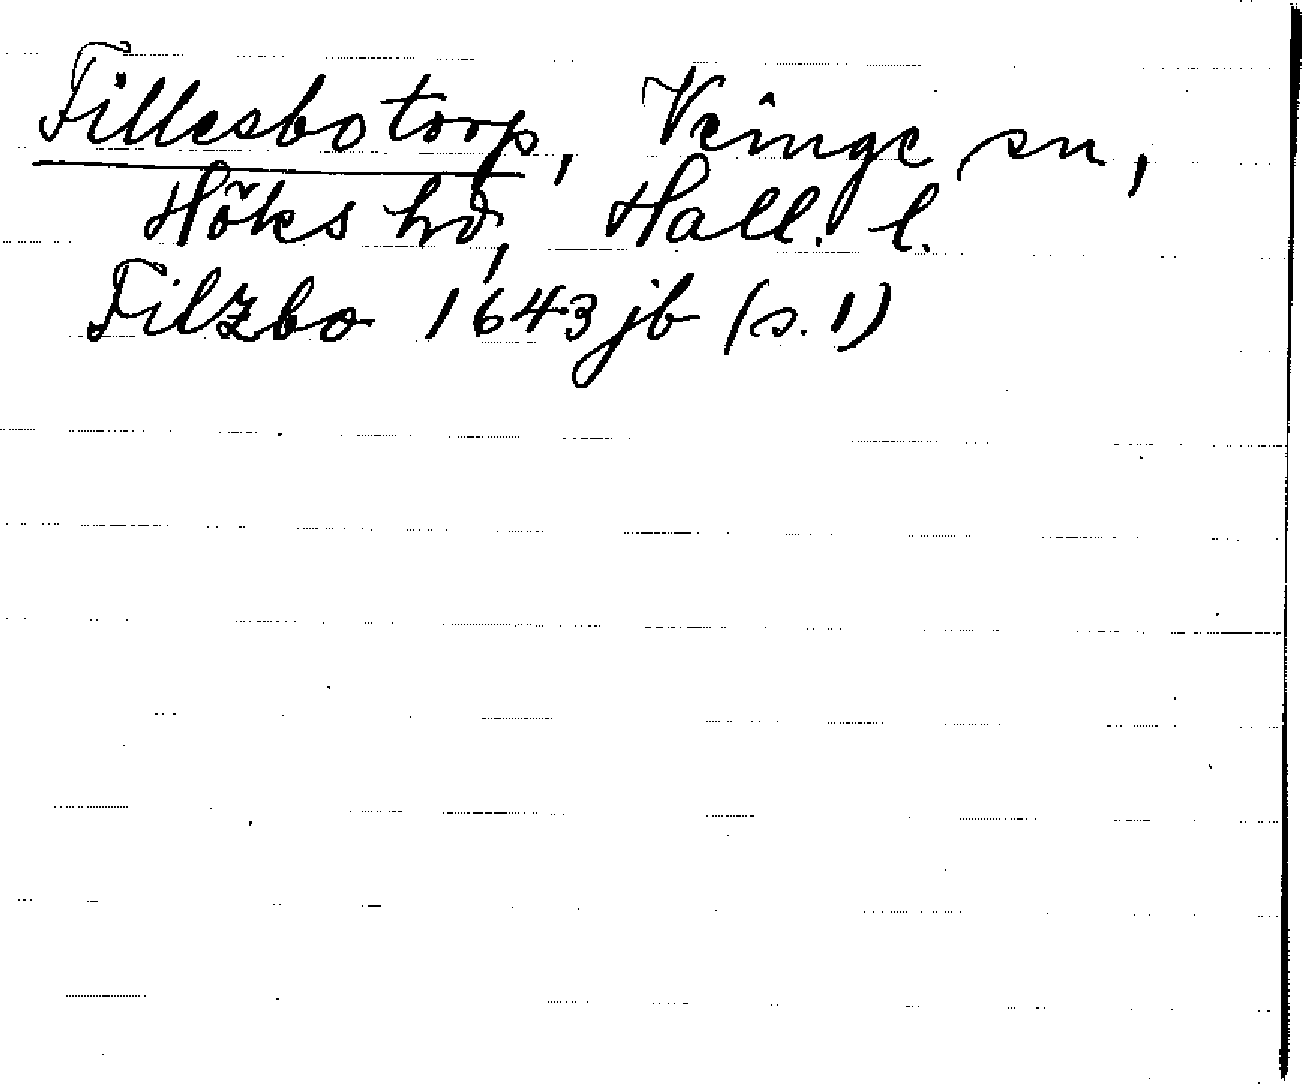 Fillesbotorp, Veinge sn,
Höks hd, Hall. l.
Filzbo 1643 jb (s. 1)